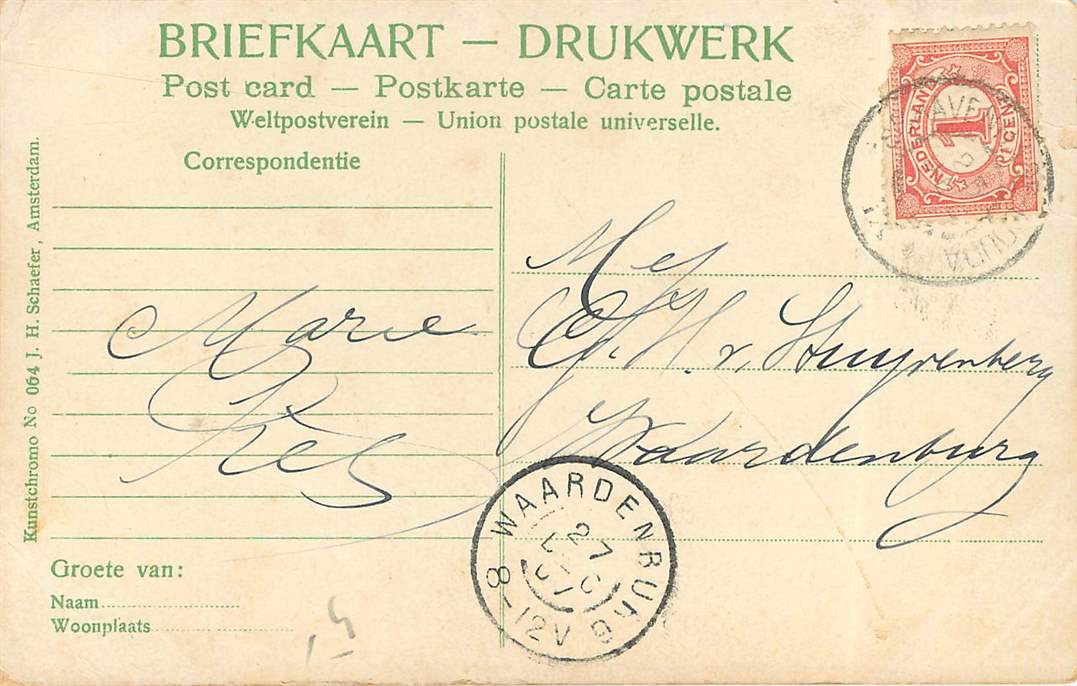 BRIEFKAART — DRUKWERK
Post card — Postkarte — Carte postale
Weltpostverein — Union postale universelle.
Correspondentie
Marie
Mej
G. H. v. Stuyvenberg
Waardenburg
Kunstchromo No 064 J. H. Schaefer, Amsterdam.
Groete van:
Naam
Woonplaats
NEDERLAND
1
1 CENT 1
GOUDA
WAARDENBURG
27
8-12V